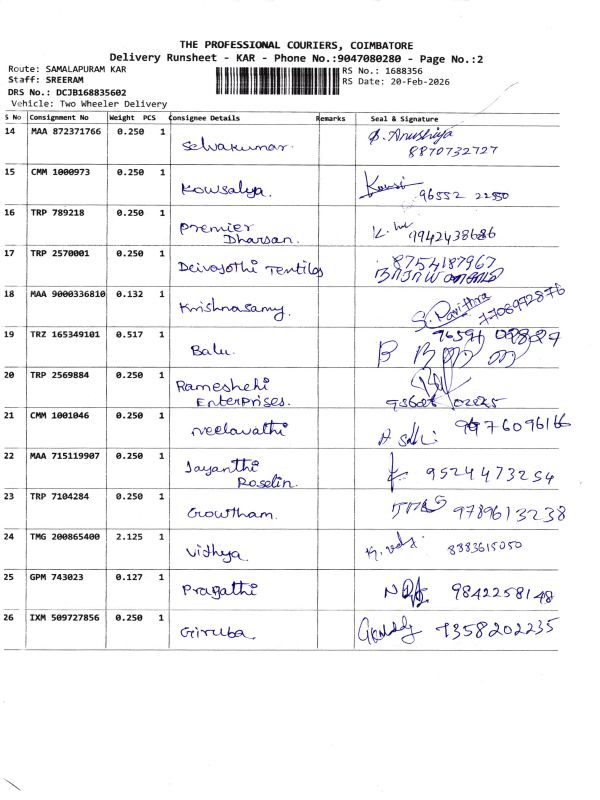 THE PROFESSIONAL COURIERS, COIMBATORE
Delivery Runsheet - KAR - Phone No.:9047080280 - Page No.:2
Route: SAMALAPURAM KAR
Staff: SREERAM
DRS No.: DCJB168835602
Vehicle: Two Wheeler Delivery
RS No.: 1688356
RS Date: 20-Feb-2026
S No Consignment No Weight PCS Consignee Details Remarks Seal & Signature
14 MAA 872371766 0.250 1 Selvakumar. S. Anushiya
8870732727
15 CMM 1000973 0.250 1 Kowsalya. 96552 22550
16 TRP 789218 0.250 1 Premier
Dharsan. 9942438686
17 TRP 2570001 0.250 1 Deivajothi Textiles 8754187967
18 MAA 9000336810 0.132 1 Krishnasamy. S. Pavithra 7708972876
19 TRZ 165349101 0.517 1 Balu.
20 TRP 2569884 0.250 1 Rameshehi
Enterprises.
21 CMM 1001046 0.250 1 Neelavathi 9976096166
22 MAA 715119907 0.250 1 Jayanthi
Roselin. 9524473254
23 TRP 7104284 0.250 1 Growtham. 9789613238
24 TMG 200865400 2.125 1 Vithya. 8883615050
25 GPM 743023 0.127 1 Pragathi 9842258148
26 IXM 509727856 0.250 1 Giruba. 9358202235